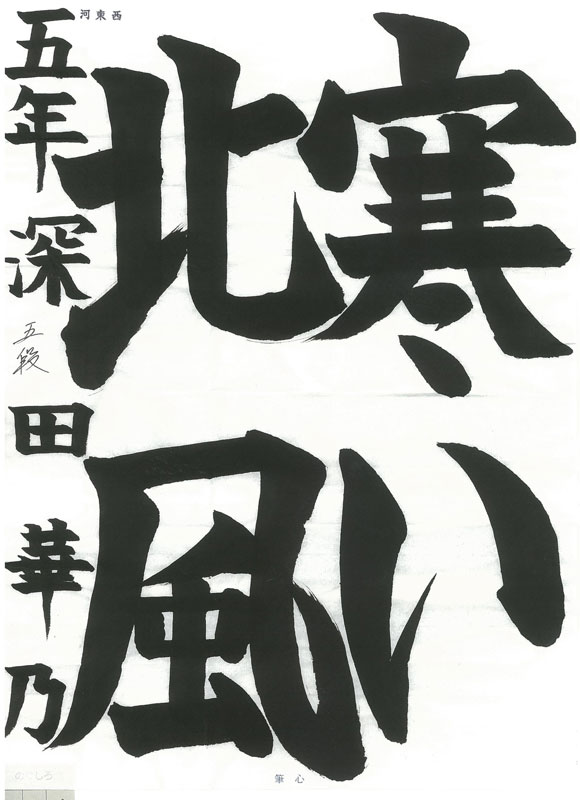 寒い
北風
五年 深田華乃
五段
河東西
筆心